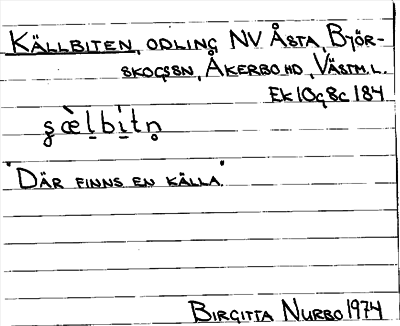 KÄLLBITEN, ODLING NV ÅSTA, BJÖR-
SKOGSSN, ÅKERBO HD, VÄSTM.L.
EK 10g8c 184
"DÄR FINNS EN KÄLLA"
BIRGITTA NURBO 1974